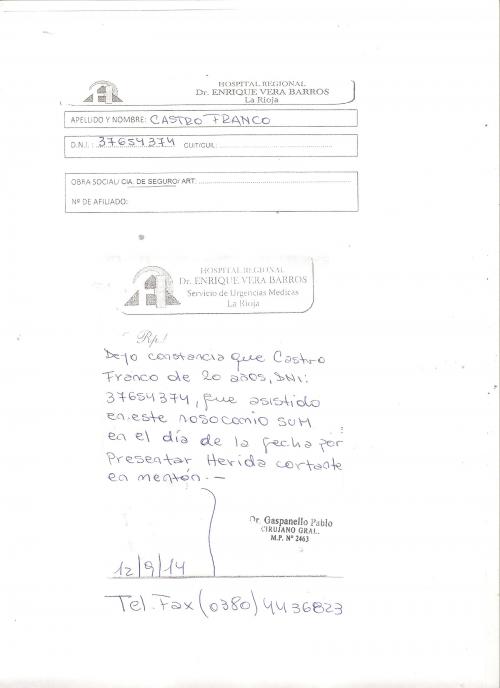 HOSPITAL REGIONAL
Dr. ENRIQUE VERA BARROS
La Rioja
APELLIDO Y NOMBRE: CASTRO FRANCO
D.N.I. : 37654374 CUIT/CUIL:
OBRA SOCIAL/ CIA. DE SEGURO/ ART:
Nº DE AFILIADO:
HOSPITAL REGIONAL
Dr. ENRIQUE VERA BARROS
Servicio de Urgencias Medicas
La Rioja
Rp./
Dejo constancia que Castro
Franco de 20 años, DNI:
37654374, fue asistido
en este nosocomio SUM
en el día de la fecha por
Presentar Herida cortante
en mentón.-
Dr. Gaspanello Pablo
CIRUJANO GRAL.
M.P. Nº 2463
12/9/14
Tel. Fax (0380) 4436823